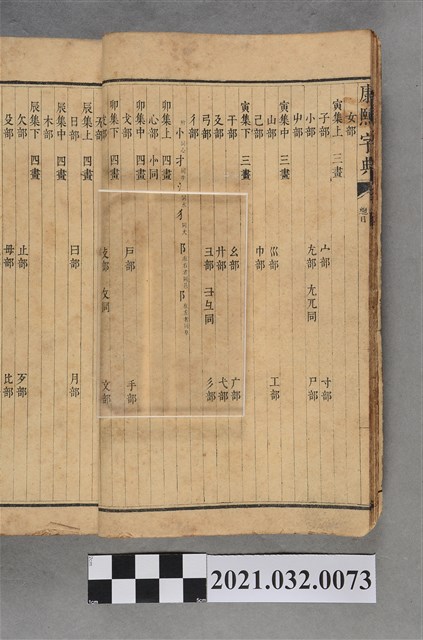 康熙字典
女部
寅集上 三畫
子部 宀部 寸部
小部 尢部 尣兀同 尸部
屮部
寅集中 三畫
山部 巛部 工部
己部 巾部
寅集下 三畫
干部 幺部 广部
廴部 廾部 弋部
弓部 彐部 彑同 彡部
彳部
卯集上 四畫
心部 小同
卯集中 四畫
戈部 戶部 手部
卯集下 四畫
支部 攵同 文部
辰集上 四畫
日部 曰部 月部
辰集中 四畫
木部
辰集下 四畫
欠部 止部 歹部
殳部 毋部 比部
2021.032.0073